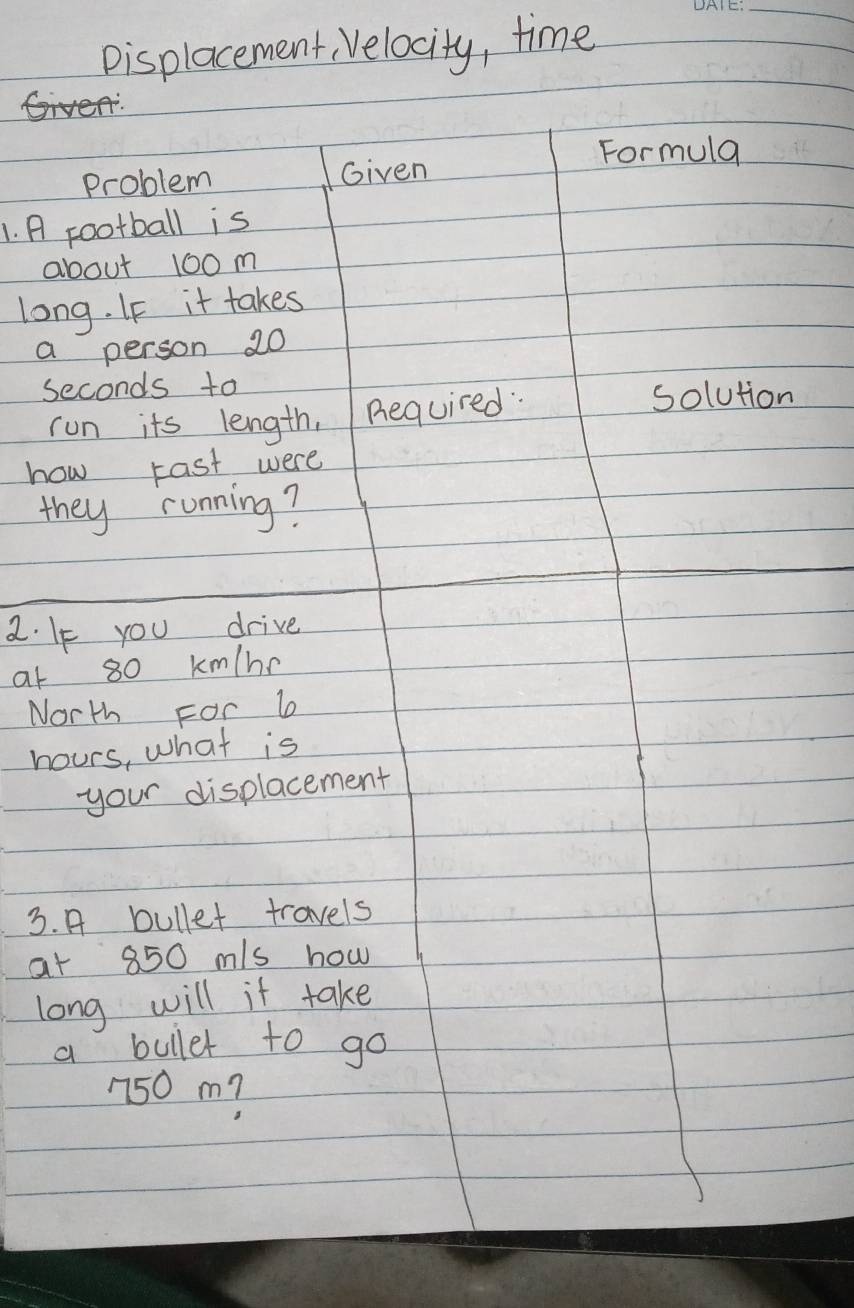 DATE:
Displacement, Velocity, time
Given:
Problem
Given
Formula
1. A Football is
about 100 m
long. IF it takes
a person 20
seconds to
run its length,
how Fast were
they running?
Required:
Solution
2. IF you drive
at 80 km/hr
North For 6
hours, what is
your displacement
3. A bullet travels
at 850 m/s how
long will it take
a bullet to go
750 m?